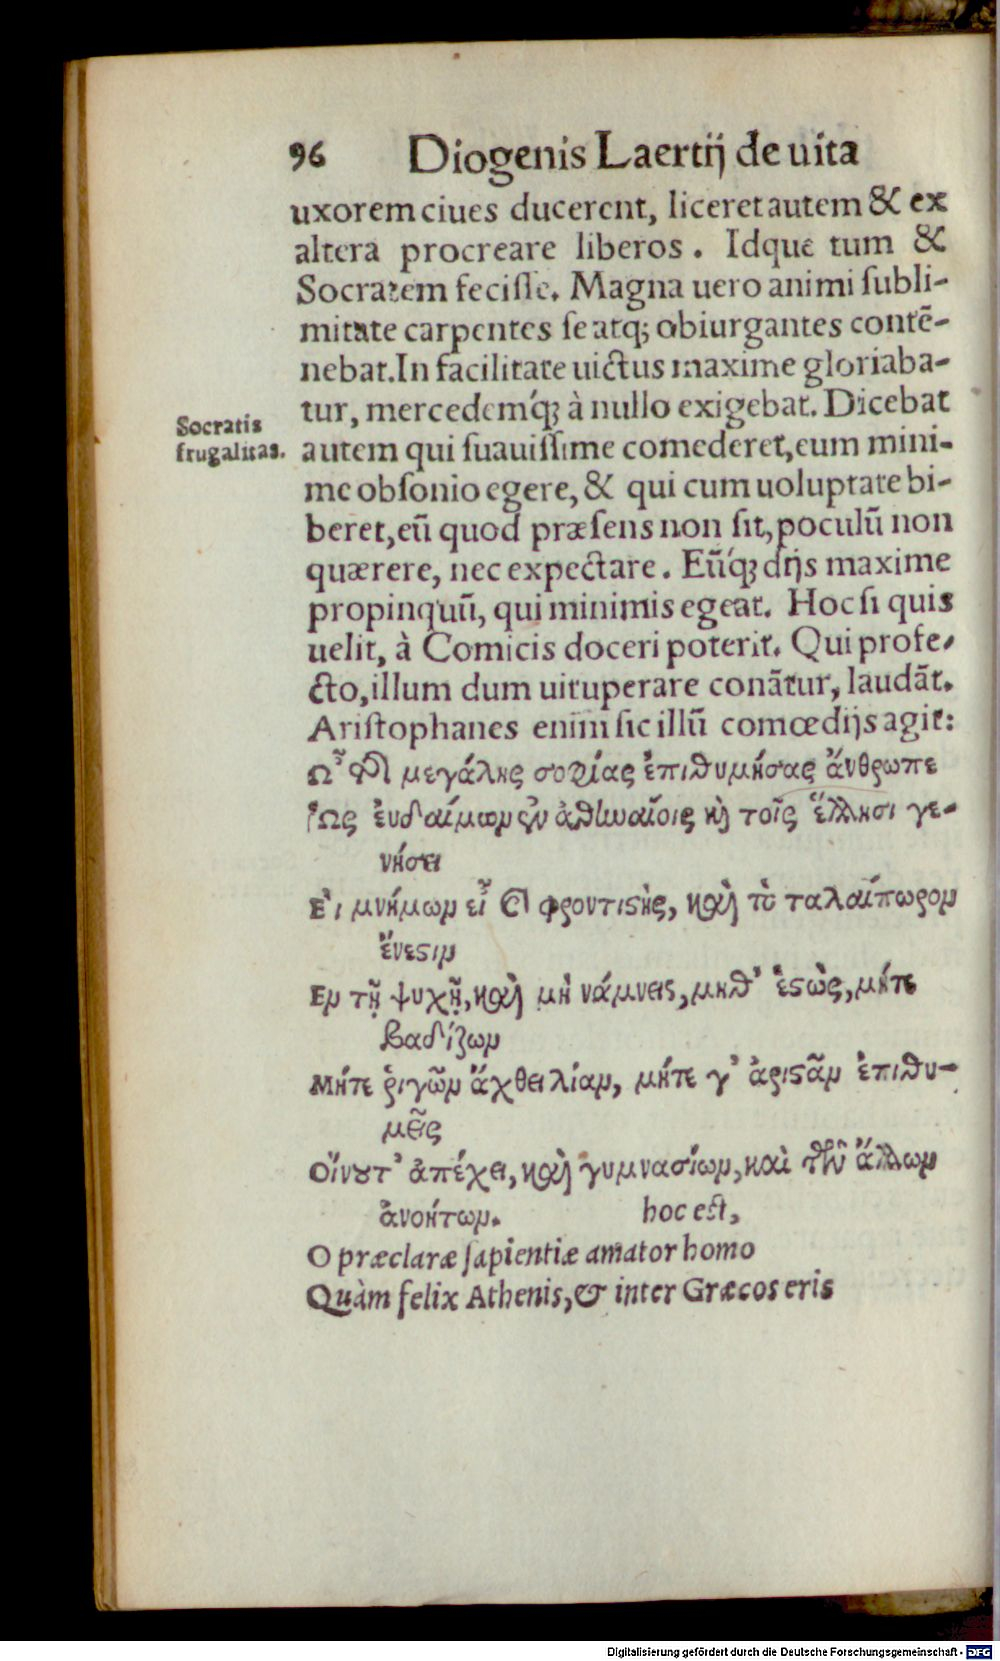 96 Diogenis Laertij de uita
uxorem ciues ducerent, liceret autem & ex
altera procreare liberos. Idque tum &
Socratem fecisse. Magna uero animi subli-
mitate carpentes se atq; obiurgantes contē-
nebat. In facilitate uictus maxime gloriaba-
tur, mercedemq́; à nullo exigebat. Dicebat
Socratis
frugalitas.
autem qui suauissime comederet, eum mini-
me obsonio egere, & qui cum uoluptate bi-
beret, eū quod præsens non sit, poculū non
quærere, nec expectare. Eūq́; dijs maxime
propinquū, qui minimis egeat. Hoc si quis
uelit, à Comicis doceri poterit. Qui profe-
cto, illum dum uituperare conātur, laudāt.
Aristophanes enim sic illū comœdijs agit:
Ω῏ τῆ μεγάλης σοφίας ἐπιθυμήσας ἄνθρωπε
Ὡς ἐυδαίμων ἐν ἀθηναίοις καὶ τοῖς ἕλλησι γε-
νήσει
Εἰ μνήμων εἶ καὶ φροντιστὴς, καὶ τὸ ταλαίπωρον
ἔνεστιν
Εν τῇ ψυχῇ, καὶ μὴ κάμνεις, μηθ' ἑστὼς, μήτε
βαδίζων
Μήτε ῥιγῶν ἄχθει λίαν, μήτε γ' ἀριστᾶν ἐπιθυ-
μεῖς
Οἴνου τ' ἀπέχει, καὶ γυμνασίων, καὶ τῶν ἄλλων
ἀνοήτων. hoc est,
O præclaræ sapientiæ amator homo
Quàm felix Athenis, & inter Græcos eris
Digitalisierung gefördert durch die Deutsche Forschungsgemeinschaft - DFG